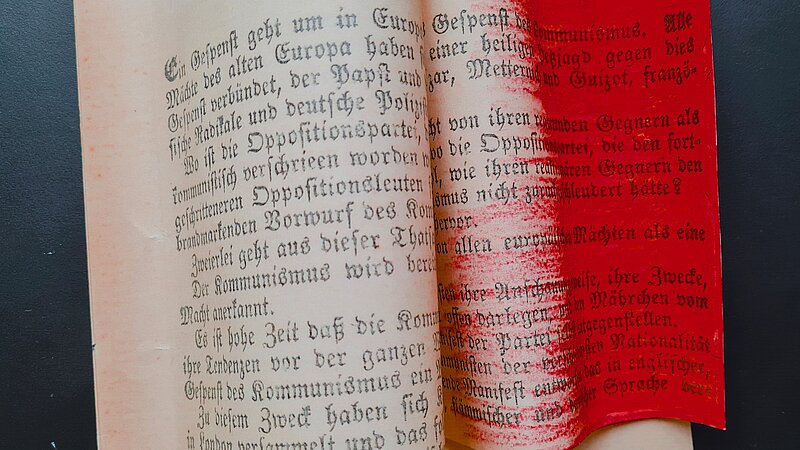 Ein Gespenst geht um in Europa Gespenst des Kommunismus. Alle
Mächte des alten Europa haben einer heiligen Hetzjagd gegen dies
Gespenst verbündet, der Papst und zar, Metternich und Guizot, franzö-
sische Radikale und deutsche Poliz
Wo ist die Oppositionspartei, ht von ihren Gegnern als
kommunistisch verschrieen worden wo die Oppositionspartei, die den fort-
geschritteneren Oppositionsleuten wie ihren reaktionären Gegnern den
brandmarkenden Vorwurf des Kom smus nicht zurückschleudert hätte?
Zweierlei geht aus dieser Thats hervor.
Der Kommunismus wird bere on allen europäischen Mächten als eine
Macht anerkannt.
Es ist hohe Zeit daß die Komm sten ihre Anschauungsweise, ihre Zwecke,
ihre Tendenzen vor der ganzen offen darlegen und den Mährchen vom
Gespenst des Kommunismus ein nifest der Partei entgegenstellen.
Zu diesem Zweck haben sich munisten der verschiedensten Nationalität
in London versammelt und das f ende Manifest entworfen, das in englischer,
flämmischer und Sprache